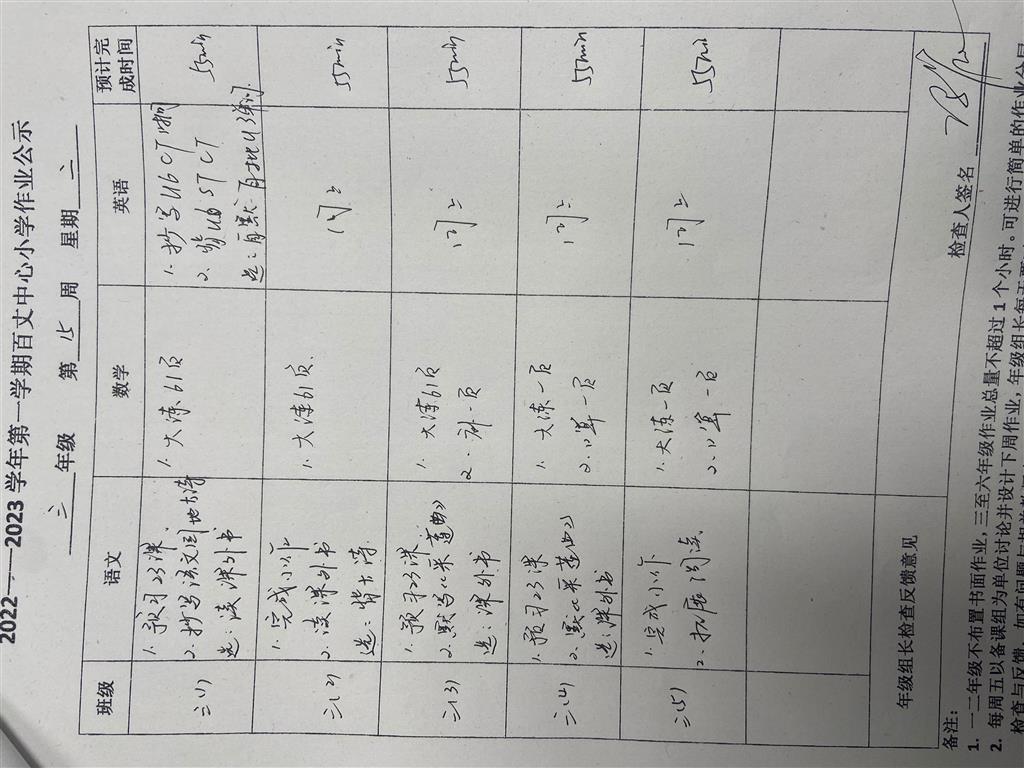 2022——2023 学年第一学期百丈中心小学作业公示
三 年级 第 15 周 星期 二
班级 语文 数学 英语 预计完成时间
三(1)
1. 预习23课
2. 抄写语文园地古诗
选：读课外书
1. 大练61页
1. 抄写U6 CT
2. 背U6 ST CT
55min
三(2)
1. 完成小作
2. 读课外书
选：背古诗
1. 大练61页
同上
55min
三(3)
1. 预习23课
选：课外书
1. 大练61页
2. 一页
同上
55min
三(4)
1. 预习23课
选：课外书
1. 大练一页
2. 口算一页
同上
55min
三(5)
1. 完成小作
2. 拓展阅读
1. 大练一页
2. 口算一页
同上
55min
年级组长检查反馈意见
检查人签名
备注：
1. 一二年级不布置书面作业，三至六年级作业总量不超过 1 个小时。可进行简单的作业分层
2. 每周五以备课组为单位讨论并设计下周作业，年级组长每天
检查与反馈，如有问题